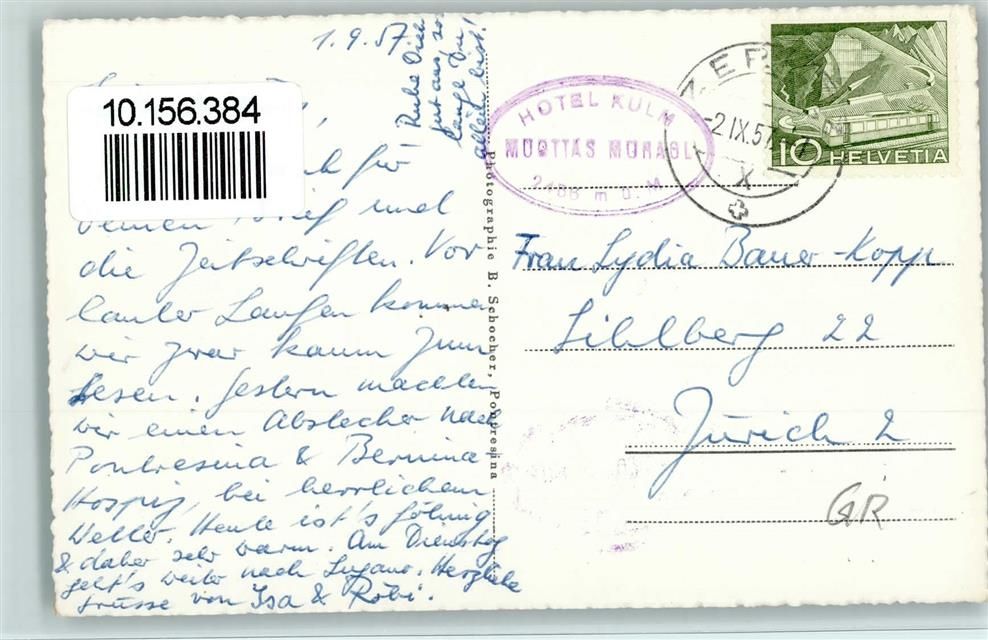 1.9.57
Ruhe Dich
gut aus, so
lange Du
allein bist!
10.156.384
für
Deinen Brief und
die Zeitschriften. Vor
lauter Laufen kommen
wir zwar kaum zum
Lesen. Gestern machten
wir einen Abstecher nach
Pontresina & Bernina
Hospiz, bei herrlichem
Wetter. Heute ist's föhnig
& daher sehr warm. Am Dienstag
geht's weiter nach Lugano. Herzliche
Grüsse von Isa & Röbi.
Photographie B. Schocher, Pontresina
HOTEL KULM
MUOTTAS MURAGL
m ü. M
-2.IX.57
X
10 HELVETIA
Frau Lydia Bauer-Kopp
Sihlberg 22
Zürich 2
GR